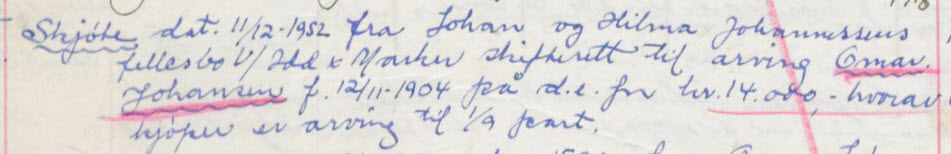 Skjøte dat. 11/12-1952 fra Johan og Hilma Johannessens
fellesbo v/ Idd & Marker skifterett til arving Omar
Johansen f. 12/11-1904 på d.e. for kr. 14.000,- hvorav
kjøper er arving til 1/9 part.